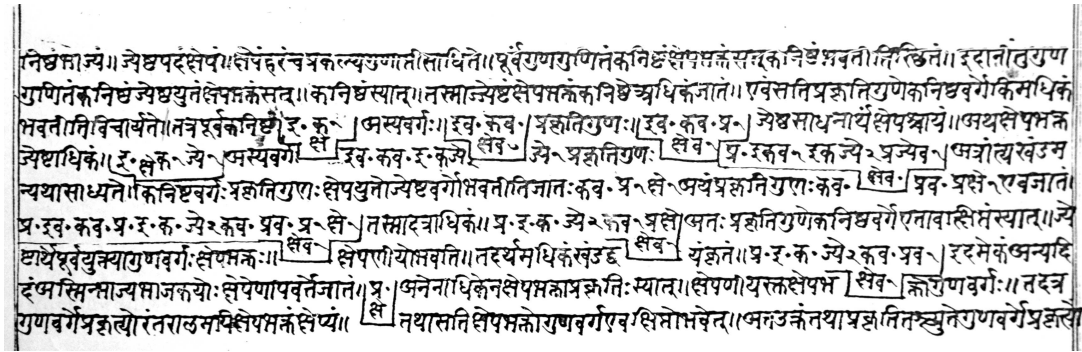 निष्ठंभाज्यं॥ ज्येष्ठपदंक्षेपं॥ क्षेपंहरंचप्रकल्प्यगुणाप्तीसाधिते॥ पूर्वगुणगुणितंकनिष्ठंक्षेपभक्तंसत्कनिष्ठंभवतीतिस्थितं॥ इदानींतुगुण
गुणितंकनिष्ठंज्येष्ठयुतंक्षेपभक्तंसत्॥ कनिष्ठंस्यात्॥ तस्माज्येष्ठंक्षेपभक्तंकनिष्ठेऽधिकंजातं॥ एवंसतिप्रकृतिगुणेकनिष्ठवर्गेकिमधिकं
भवतीतिविचार्यते॥ तत्रपूर्वकनिष्ठं इ॰ क १ अस्यवर्गः॥ इव॰ कव॰ प्रकृतिगुणः॥ इव॰ कव॰ प्र १ ज्येष्ठसाधनार्थंक्षेपश्चायं॥ अथक्षेपभक्त
ज्येष्ठाधिकं॥ इ॰ क १ ज्ये १ अस्यवर्गो इव॰ कव॰ इ॰ कज्ये ज्ये १ प्रकृतिगुणः प्र॰ इकव १ इकज्ये २ प्रज्येव १ अत्रांत्यखंडम
न्यथासाध्यते॥ कनिष्टवर्गः प्रकृतिगुणः क्षेपयुतोज्येष्टवर्गोभवतीतिजातः कव॰ प्र १ क्षे १ अयंप्रकृतिगुणः कव॰ प्रव॰ प्रक्षे १ एवंजातं
प्र॰ इव॰ कव॰ प्र॰ इ॰ क॰ ज्ये २ कव॰ प्रव॰ प्र १ क्षे १ तस्मादत्राधिकं॥ प्र॰ इ॰ क॰ ज्ये २ कव १ प्रक्षे अतः प्रकृतिगुणेकनिष्ठवर्गेएतावत्क्षिप्तंस्यात्॥ ज्ये
ष्ठार्थंपूर्वयुक्त्यागुणवर्गः क्षेपभक्तः॥ क्षेपणीयोभवति॥ तदर्थमधिकंखंडद्व यंकृतं॥ प्र॰ इ॰ क॰ ज्ये २ कव॰ प्रव १ इदमेकंअन्यदि
दंअस्मिन्भाज्यभाजकयोः क्षेपेणापवर्तेजातं॥ प्र॰ अनेनाधिकेनक्षेपभक्ताप्रकृतिः स्यात्॥ क्षेपणीयस्तक्षेपभ क्तोगुणवर्गः॥ तदत्र
गुणवर्गेप्रकृत्योरंतरालमपिक्षेपभक्तंक्षेप्यं॥ तथासतिक्षेपभक्तोगुणवर्गएवक्षिप्तोभवेत्॥ अतउक्तंतथाप्रकृतितश्च्युतेगुणवर्गेप्रकृत्यो